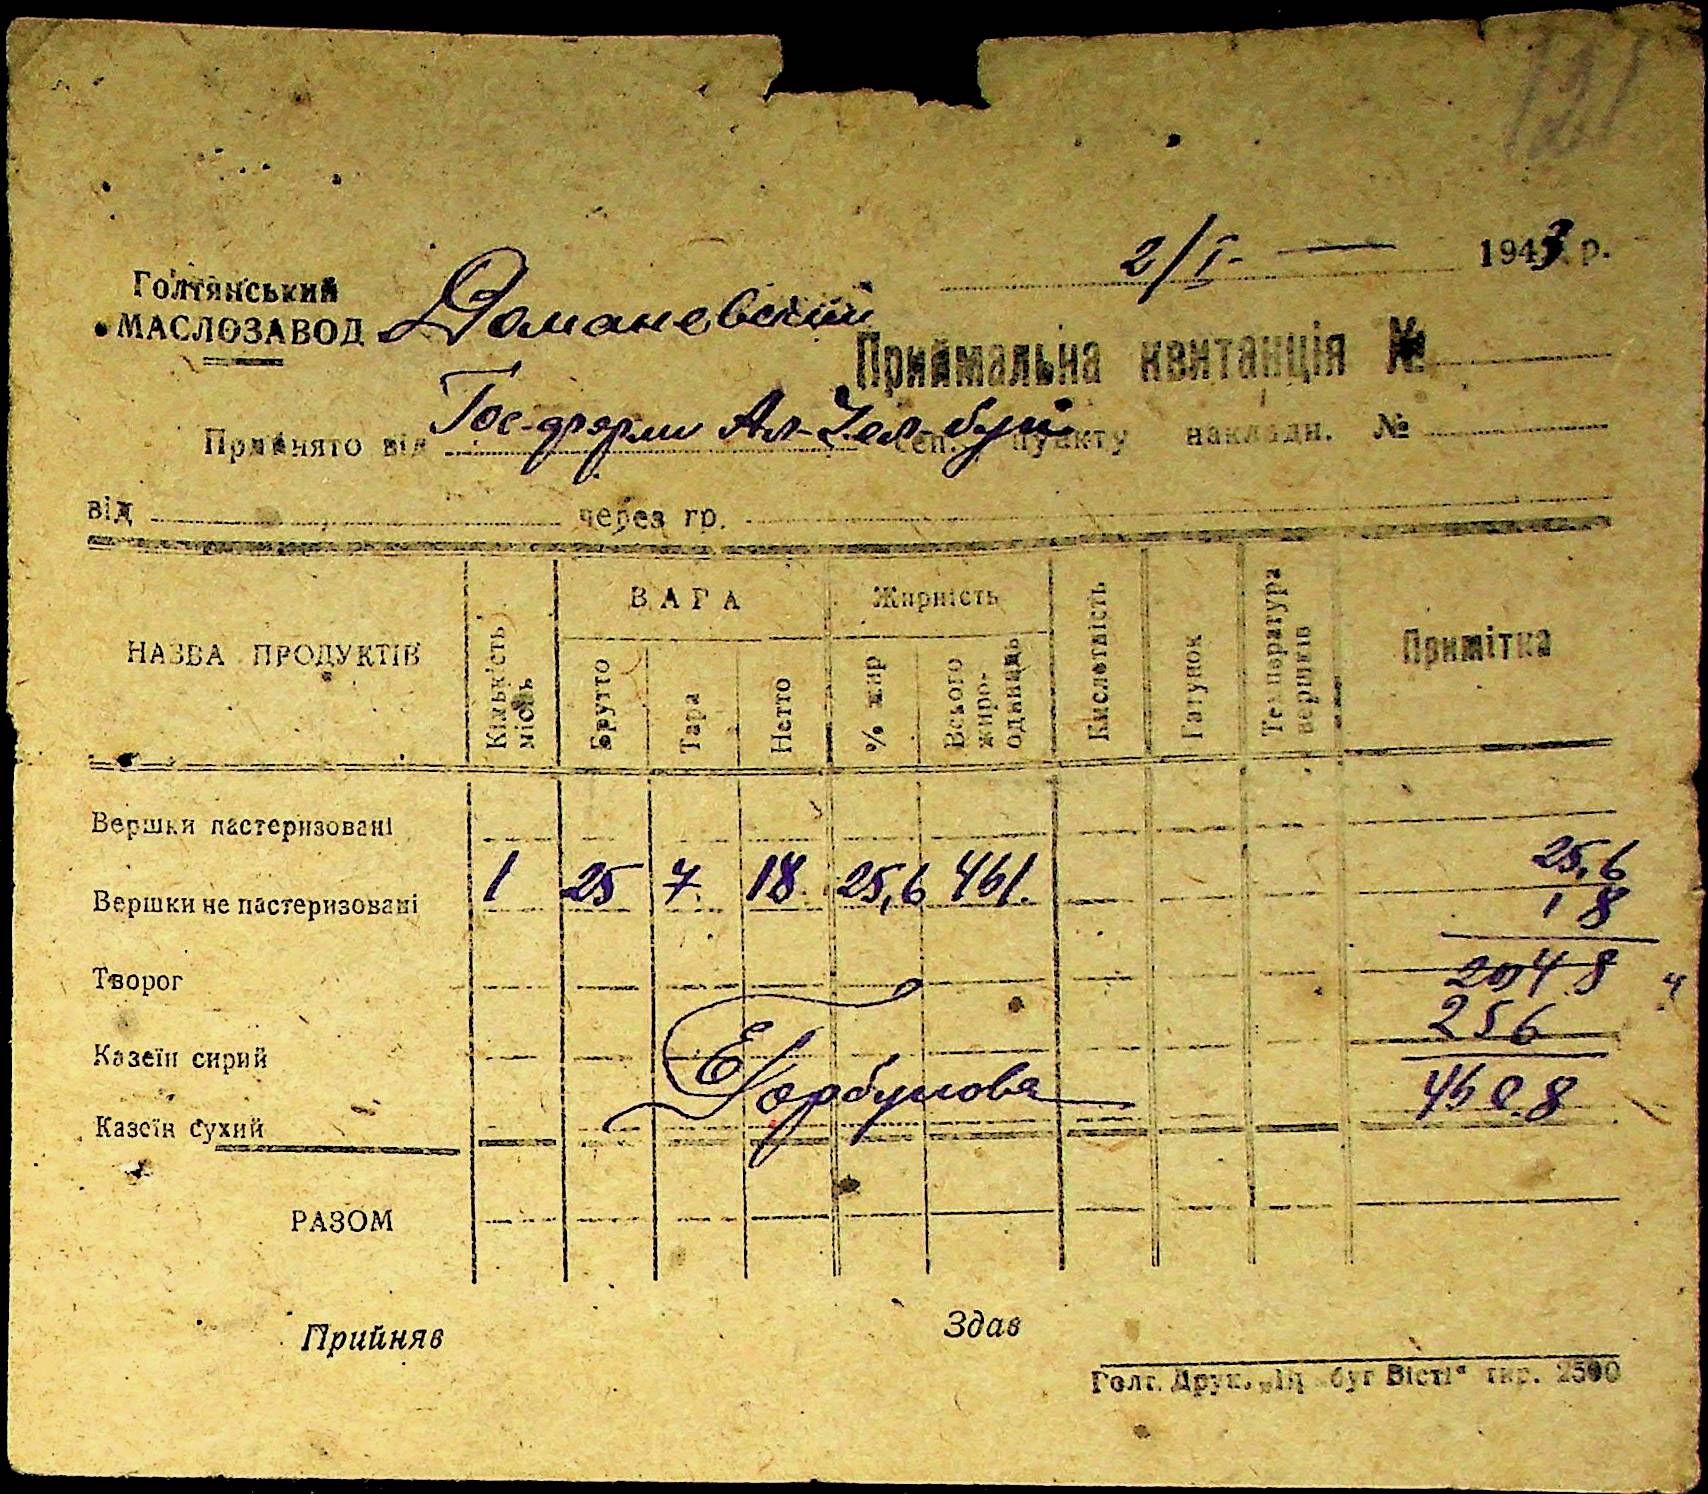 121
2/I. — 1943 р.
Голтянський
МАСЛОЗАВОД Доманевский
Приймальна квитанція №
Прийнято від Гос-фермы Ал- сеп. пункту накладн. №
від через гр.
НАЗВА ПРОДУКТІВ
Кільк'сть місць
ВАГА
Брутто
Тара
Нетто
Жирність
% жир
Всього жиро-одиниць
Кислотність
Гатунок
Температура вершків
Примітка
Вершки пастеризовані
Вершки не пастеризовані 1 25 7 18 25,6 461.
25,6
18
2048
256
460.8
Творог
Казеїн сирий
Казеїн сухий
Горбунова
РАЗОМ
Прийняв Здав
Голт. Друк. буг Вісті" тир. 2500